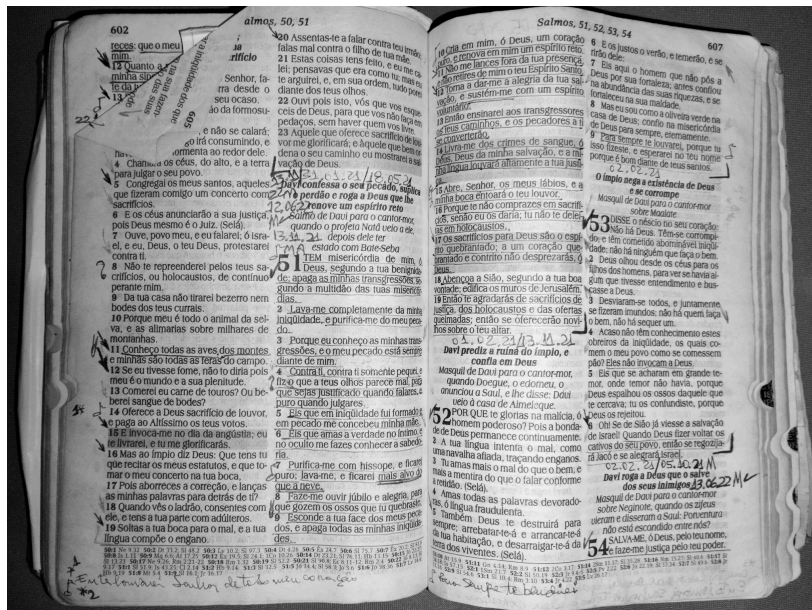 602
almos, 50, 51
reces: que o meu
mim.
12 Quanto a
minha sin
te da p
13
Senhor, fa-
rra desde o
seu ocaso.
da formosu-
, e não se calará;
go irá consumindo, e
ormenta ao redor dele.
4 Chamará os céus, do alto, e a terra
para julgar o seu povo.
5 Congregai os meus santos, aqueles
que fizeram comigo um concerto com
sacrifícios.
6 E os céus anunciarão a sua justiça,
pois Deus mesmo é o Juiz. (Selá).
7 Ouve, povo meu, e eu falarei; ó Isra-
el, e eu, Deus, o teu Deus, protestarei
contra ti.
8 Não te repreenderei pelos teus sa-
crifícios, ou holocaustos, de contínuo
perante mim.
9 Da tua casa não tirarei bezerro nem
bodes dos teus currais.
10 Porque meu é todo o animal da sel-
va, e as alimárias sobre milhares de
montanhas.
11 Conheço todas as aves dos montes
e minhas são todas as feras do campo.
12 Se eu tivesse fome, não to diria pois
meu é o mundo e a sua plenitude.
13 Comerei eu carne de touros? Ou be-
berei sangue de bodes?
14 Oferece a Deus sacrifício de louvor,
e paga ao Altíssimo os teus votos.
15 E invoca-me no dia da angústia; eu
te livrarei, e tu me glorificarás.
16 Mas ao ímpio diz Deus: Que tens tu
que recitar os meus estatutos, e que to-
mar o meu concerto na tua boca.
17 Pois aborreces a correção, e lanças
as minhas palavras para detrás de ti?
18 Quando vês o ladrão, consentes com
ele, e tens a tua parte com adúlteros.
19 Soltas a tua boca para o mal, e a tua
língua compõe o engano.
20 Assentas-te a falar contra teu irmão;
falas mal contra o filho de tua mãe.
21 Estas coisas tens feito, e eu me ca-
lei; pensavas que era como tu; mas eu
te arguirei, e, em sua ordem, tudo porei
diante dos teus olhos.
22 Ouvi pois isto, vós que vos esque-
ceis de Deus, para que vos não faça em
pedaços, sem haver quem vos livre.
23 Aquele que oferece sacrifício de lou-
vor me glorificará; e àquele que bem or-
dena o seu caminho eu mostrarei a sal-
vação de Deus.
31.01.21/18.05.21
Davi confessa o seu pecado, suplica
o perdão e roga a Deus que lhe
renove um espírito reto
12.06.22
Salmo de Davi para o cantor-mor,
quando o profeta Natã veio a ele,
13.11.21 depois dele ter
estado com Bate-Seba
51 TEM misericórdia de mim, ó
Deus, segundo a tua benignida-
de; apaga as minhas transgressões, se-
gundo a multidão das tuas misericór-
dias.
2 Lava-me completamente da minha
iniqüidade, e purifica-me do meu peca-
do.
3 Porque eu conheço as minhas trans-
gressões, e o meu pecado está sempre
diante de mim.
4 Contra ti, contra ti somente pequei, e
fiz o que a teus olhos parece mal, para
que sejas justificado quando falares, e
puro quando julgares.
5 Eis que em iniqüidade fui formado e
em pecado me concebeu minha mãe.
6 Eis que amas a verdade no íntimo, e
no oculto me fazes conhecer a sabedo-
ria.
7 Purifica-me com hissope, e ficarei
puro; lava-me, e ficarei mais alvo do
que a neve.
8 Faze-me ouvir júbilo e alegria, para
que gozem os ossos que tu quebraste.
9 Esconde a tua face dos meus peca-
dos, e apaga todas as minhas iniqüida-
des.
Salmos, 51, 52, 53, 54
607
10 Cria em mim, ó Deus, um coração
puro, e renova em mim um espírito reto.
11 Não me lances fora da tua presença,
e não retires de mim o teu Espírito Santo.
12 Torna a dar-me a alegria da tua sal-
vação, e sustém-me com um espírito
voluntário.
13 Então ensinarei aos transgressores
os teus caminhos, e os pecadores a ti
se converterão.
14 Livra-me dos crimes de sangue, ó
Deus, Deus da minha salvação, e a mi-
nha língua louvará altamente a tua justi-
ça.
15 Abre, Senhor, os meus lábios, e a
minha boca entoará o teu louvor.
16 Porque te não comprazes em sacrifí-
cios, senão eu os daria; tu não te delei-
tas em holocaustos.
17 Os sacrifícios para Deus são o espí-
rito quebrantado; a um coração que-
brantado e contrito não desprezarás, ó
Deus.
18 Abençoa a Sião, segundo a tua boa
vontade; edifica os muros de Jerusalém.
19 Então te agradarás de sacrifícios de
justiça, dos holocaustos e das ofertas
queimadas; então se oferecerão novi-
lhos sobre o teu altar.
01.02.21/13.11.21
Davi prediz a ruína do ímpio, e
confia em Deus
Masquil de Davi para o cantor-mor,
quando Doegue, o edomeu, o
anunciou a Saul, e lhe disse: Davi
veio à casa de Aimeleque.
52 POR QUE te glorias na malícia, ó
homem poderoso? Pois a bonda-
de de Deus permanece continuamente.
2 A tua língua intenta o mal, como
uma navalha afiada, traçando enganos.
3 Tu amas mais o mal do que o bem, e
mais a mentira do que o falar conforme
a retidão. (Selá).
4 Amas todas as palavras devorado-
ras, ó língua fraudulenta.
5 Também Deus te destruirá para
sempre; arrebatar-te-á e arrancar-te-á
da tua habitação, e desarraigar-te-á da
terra dos viventes. (Selá).
6 E os justos o verão, e temerão, e se
rirão dele:
7 Eis aqui o homem que não pôs a
Deus por sua fortaleza; antes confiou
na abundância das suas riquezas, e se
fortaleceu na sua maldade.
8 Mas eu sou como a oliveira verde na
casa de Deus; confio na misericórdia
de Deus para sempre, eternamente.
9 Para sempre te louvarei, porque tu
isso fizeste, e esperarei no teu nome
porque é bom diante de teus santos.
02.02.21
O ímpio nega a existência de Deus
e se corrompe
Masquil de Davi para o cantor-mor
sobre Maalate
53 DISSE o néscio no seu coração:
Não há Deus. Têm-se corrompi-
do, e têm cometido abominável iniqüi-
dade; não há ninguém que faça o bem.
2 Deus olhou desde os céus para os
filhos dos homens, para ver se havia al-
gum que tivesse entendimento e bus-
casse a Deus.
3 Desviaram-se todos, e juntamente
se fizeram imundos; não há quem faça
o bem, não há sequer um.
4 Acaso não têm conhecimento estes
obreiros da iniqüidade, os quais co-
mem o meu povo como se comessem
pão? Eles não invocam a Deus.
5 Eis que se acharam em grande te-
mor, onde temor não havia, porque
Deus espalhou os ossos daquele que
te cercava; tu os confundiste, porque
Deus os rejeitou.
6 Oh! Se de Sião já viesse a salvação
de Israel! Quando Deus fizer voltar os
cativos do seu povo, então se regozija-
rá Jacó e se alegrará Israel.
02.02.21/05.10.21 M
Davi roga a Deus que o salve
dos seus inimigos 13.06.22 M
Masquil de Davi para o cantor-mor
sobre Neginote, quando os zifeus
vieram e disseram a Saul: Porventura
não está escondido entre nós?
54 SALVA-ME, ó Deus, pelo teu nome,
e faze-me justiça pelo teu poder.